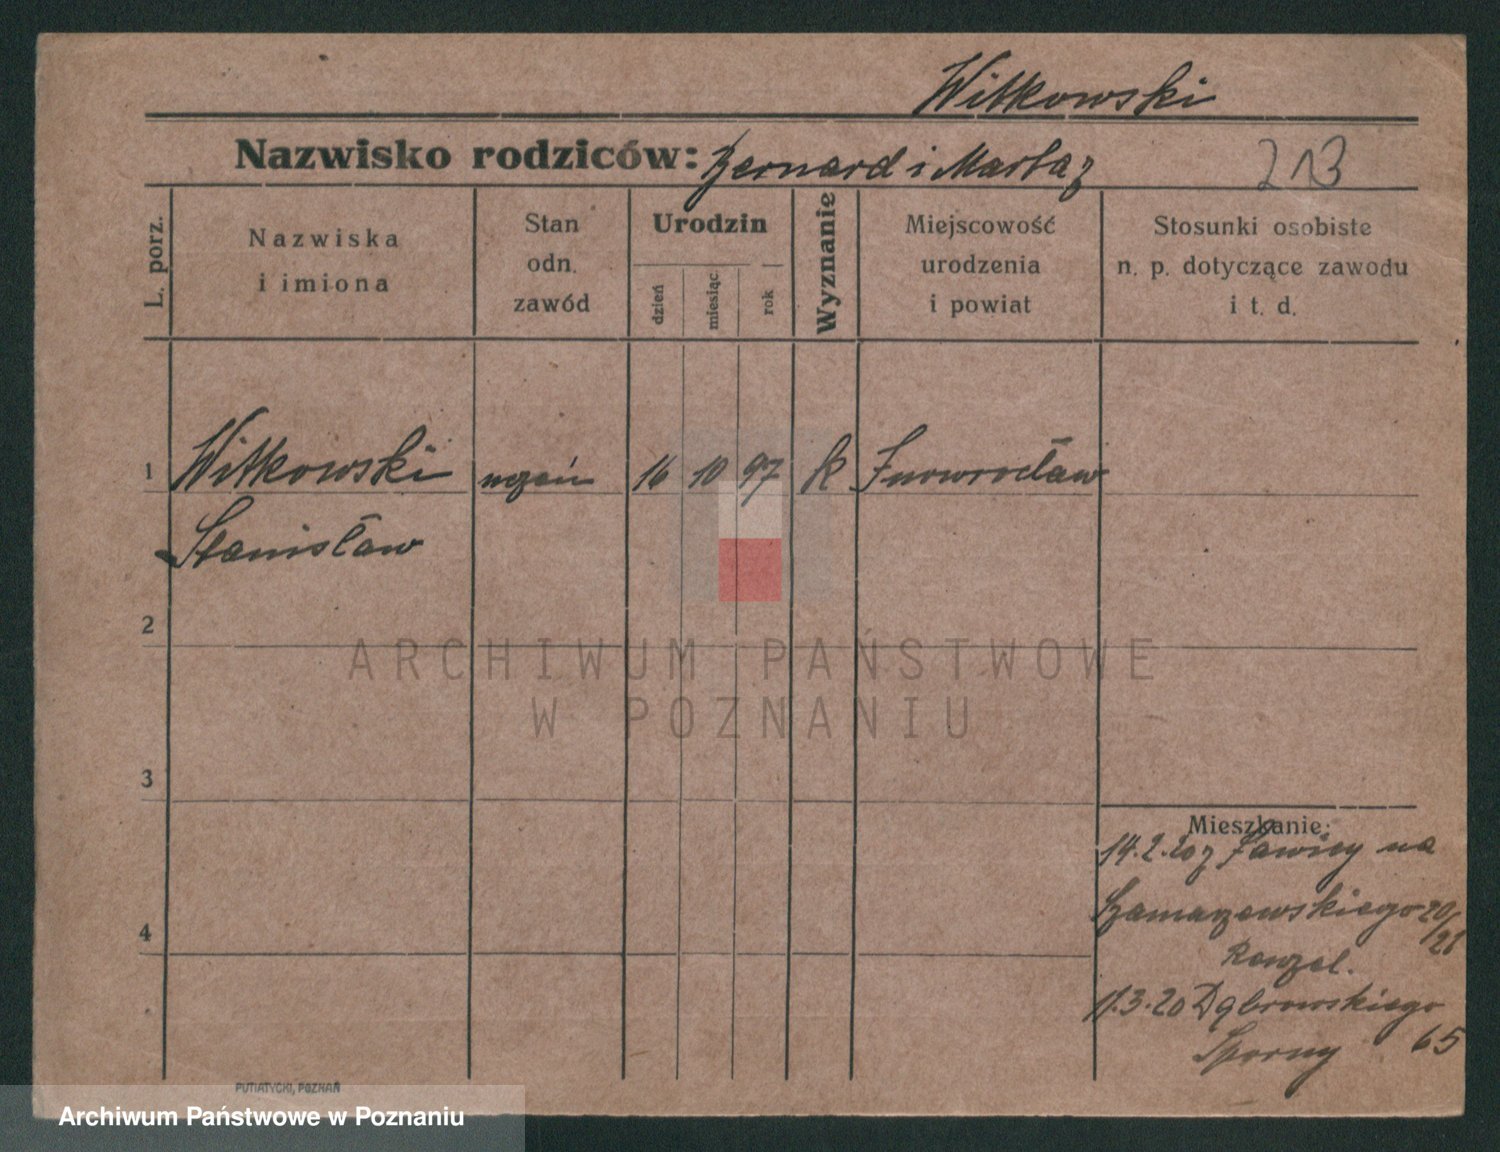 Witkowski
Nazwisko rodziców: Bernard i Marta z
213
L. porz.
Nazwiska
i imiona
Stan
odn.
zawód
Urodzin
dzień
miesiąc
rok
Wyznanie
Miejscowość
urodzenia
i powiat
Stosunki osobiste
n. p. dotyczące zawodu
i t. d.
1 Witkowski uczeń 16 10 97 k Inowrocław
Stanisław
2
ARCHIWUM PAŃSTWOWE
W POZNANIU
3
Mieszkanie:
14.2.20 z Ławicy na
Szamarzewskiego 20/21
4
11.3.20 Dąbrowskiego
65
Sporny
PUTIATYCKI, POZNAŃ
Archiwum Państwowe w Poznaniu